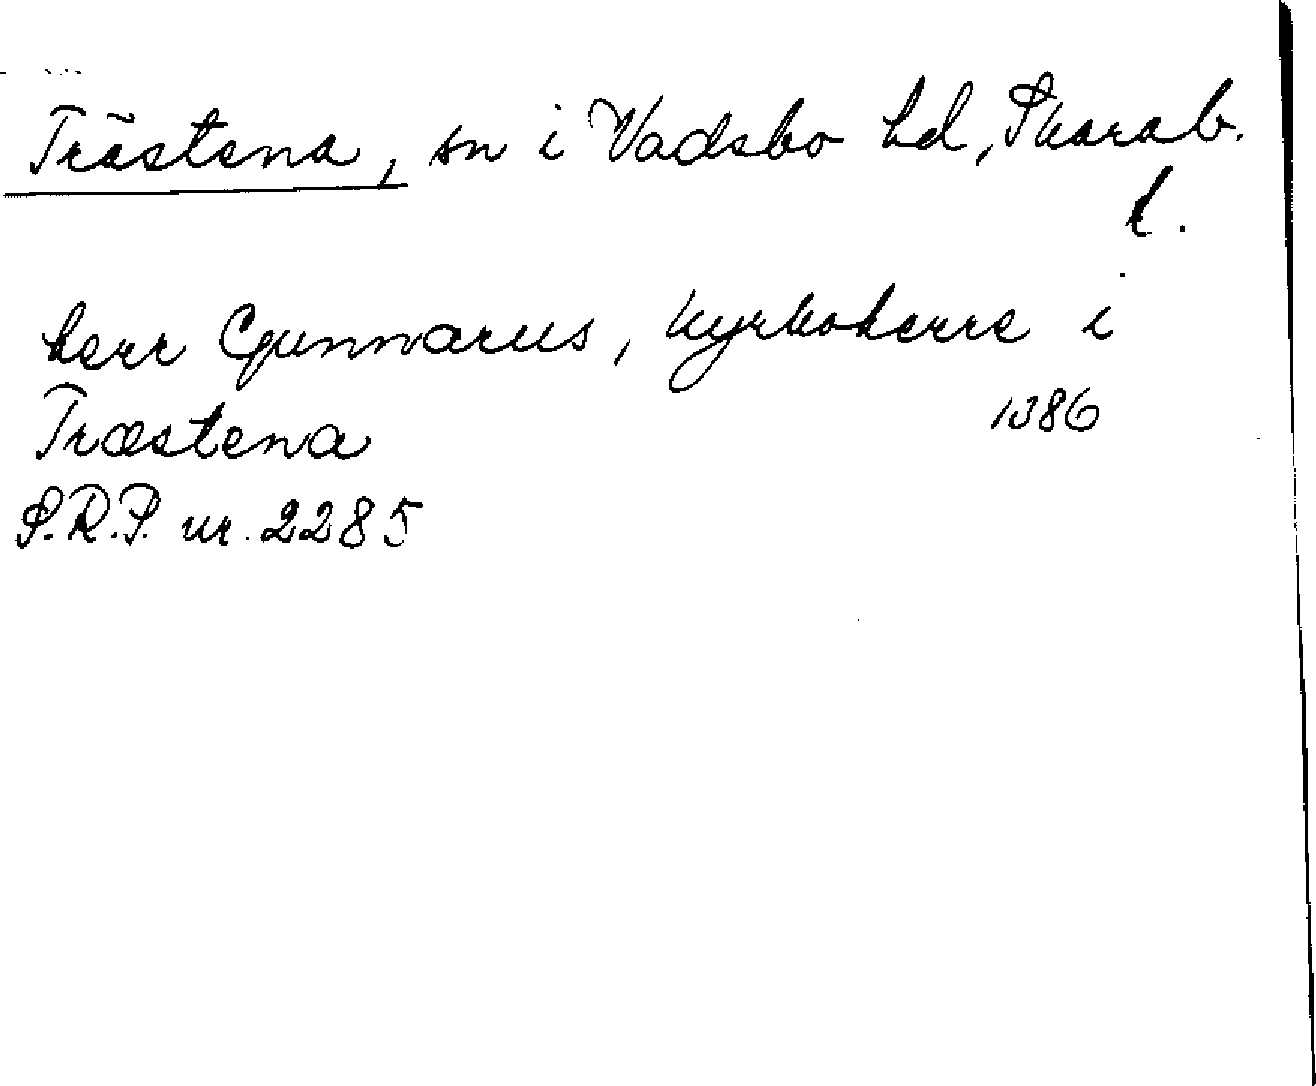 Trästena, sn i Vadsbo hd, Skarab.
l.
herr Gunnarus, kyrkoherre i
Træstena 1386
S.R.P. nr. 2285